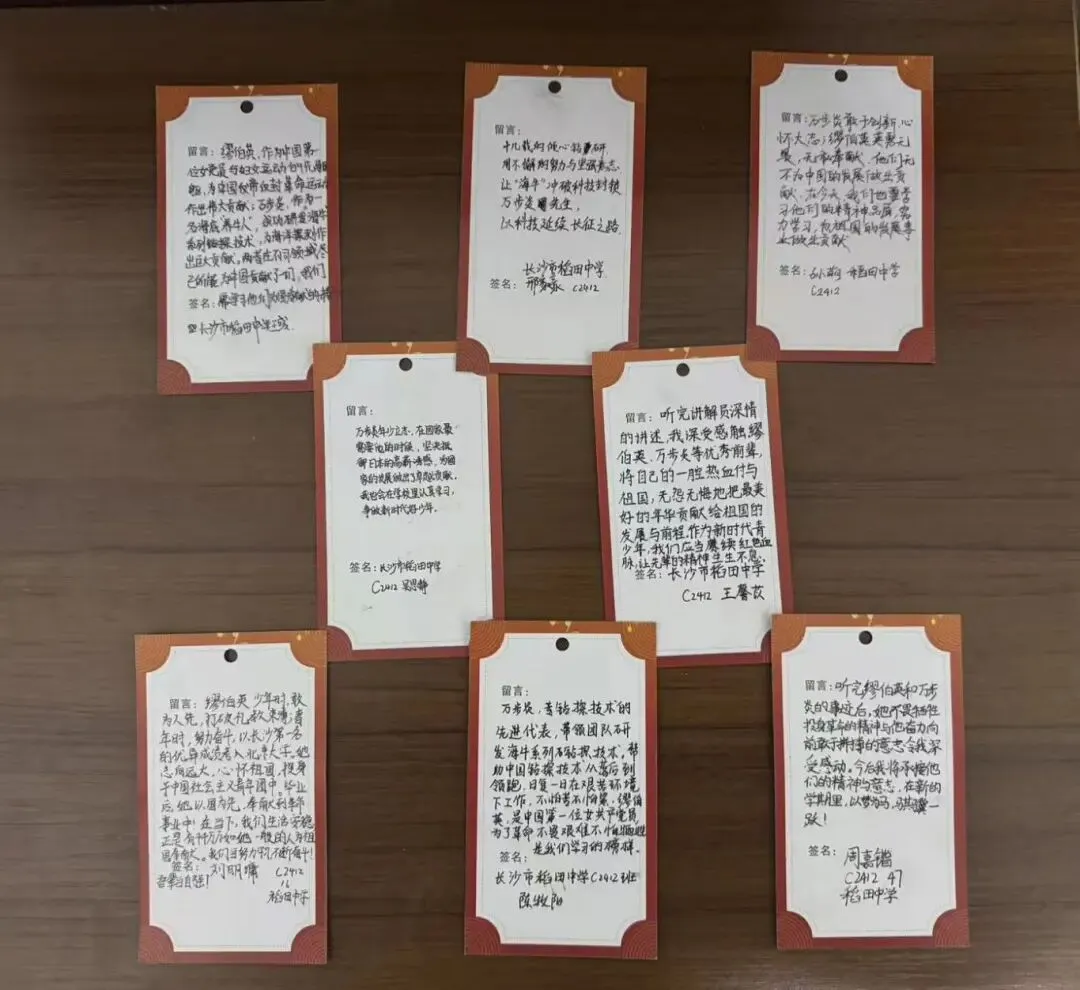 留言：缪伯英，作为中国第一
位女党员与妇女运动的先驱
者，为中国反帝反封革命运动
作出伟大贡献；万步炎，作为一
名海底"养牛人"，成功研发海牛
系列钻探技术，为海洋探测作
出巨大贡献。两者在不同领域尽
己所能为中国贡献了一切，我们
签名：
长沙市稻田中学
留言：
十几载的倾心钻研
用不懈的努力与坚强意志
让"海牛"冲破科技封锁
万步炎先生，
以科技延续长征之路
长沙市稻田中学
签名： C2412
留言：万步炎敢于创新，心
怀大志；缪伯英英勇无
畏，无私奉献。他们无
不为中国的发展做出贡
献。在今天，我们也要学
习他们的精神品质，努
力学习，为祖国的发展事
业做出贡献
签名： 稻田中学
C2412
留言：
万步炎年少立志，在国家最
需要他的时候，坚决拒
绝日本的高薪诱惑，为国
家的发展做出了卓越贡献。
我也会在学校里认真学习，
争做新时代好少年。
签名：长沙市稻田中学
C2412 吴思静
留言：听完讲解员深情
的讲述，我深受感触缪
伯英、万步炎等优秀前辈，
将自己的一腔热血付与
祖国，无怨无悔地把最美
好的年华贡献给祖国的
发展与前程。作为新时代青
少年，我们应当赓续红色血
脉，让先辈的精神生生不息。
签名：长沙市稻田中学
C2412 王馨苡
留言：缪伯英少年时，敢
为人先，打破礼教束缚；青
年时，努力奋斗，以长沙第一名
的优异成绩考入北京大学。她
志向远大，心怀祖国，投身
于中国社会主义青年团中。毕业
后，她以国为先，奉献到革命
事业中！在当下，我们生活安稳
正是有千千万万如她一般的人为祖
国奉献。我们当努力学习，不断奋斗！
签名：刘明 C2412
吾辈当自强！ 16
稻田中学
留言：
万步炎，是钻探技术的
先进代表，带领团队研
发海牛系列钻探技术，帮
助中国钻探技术从落后到
领跑，日复一日在艰苦环境
下工作，不怕苦不怕累，缪伯
英，是中国第一位女共产党员
为了革命不畏艰难不怕牺牲
是我们学习的榜样。
签名：
长沙市稻田中学C2412班
陈牧阳
留言：听完缪伯英和万步
炎的事迹后，她不畏牺牲
投身革命的精神与他奋力向
前敢于拼搏的意志令我深
受感动。今后我将承接他
们的精神与意志，在新的
学期里，以梦为马，骐骥一
跃！
签名：周嘉锴
C2412 47
稻田中学